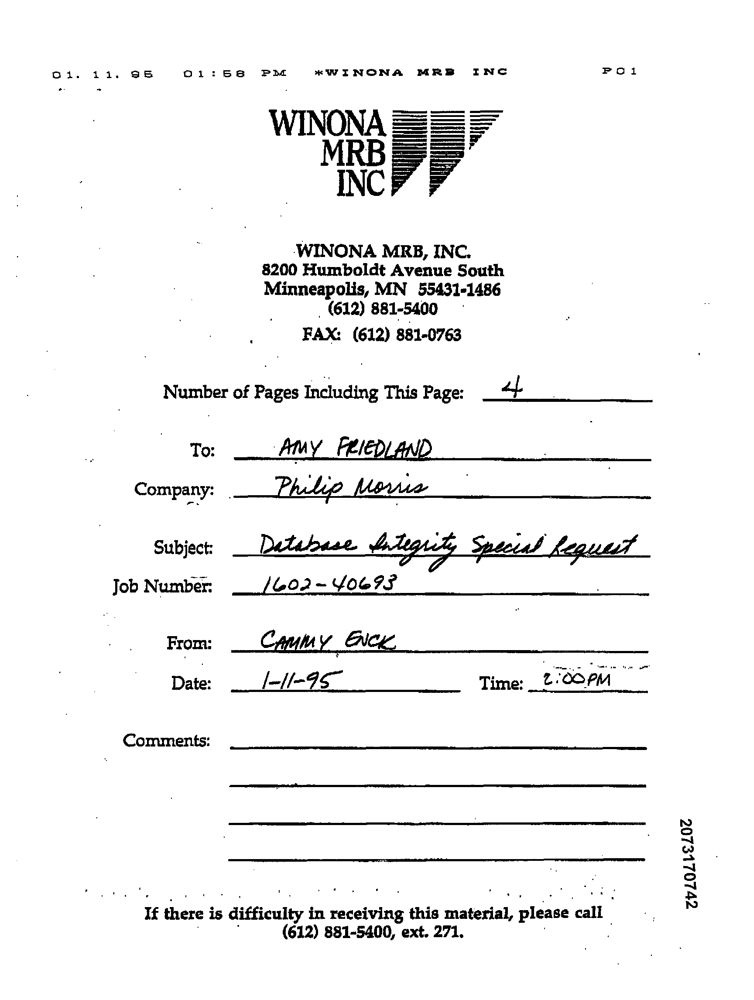 01. 11. 95 01:58 PM *WINONA MRB INC P01
WINONA
MRB
INC
WINONA MRB, INC.
8200 Humboldt Avenue South
Minneapolis, MN 55431-1486
(612) 881-5400
FAX: (612) 881-0763
Number of Pages Including This Page: 4
To: AMY FRIEDLAND
Company: Philip Morris
Subject: Database Integrity Special Request
Job Number: 1602-40693
From: CAMMY ENCK
Date: 1-11-95 Time: 2:00PM
Comments:
2073170742
If there is difficulty in receiving this material, please call
(612) 881-5400, ext. 271.